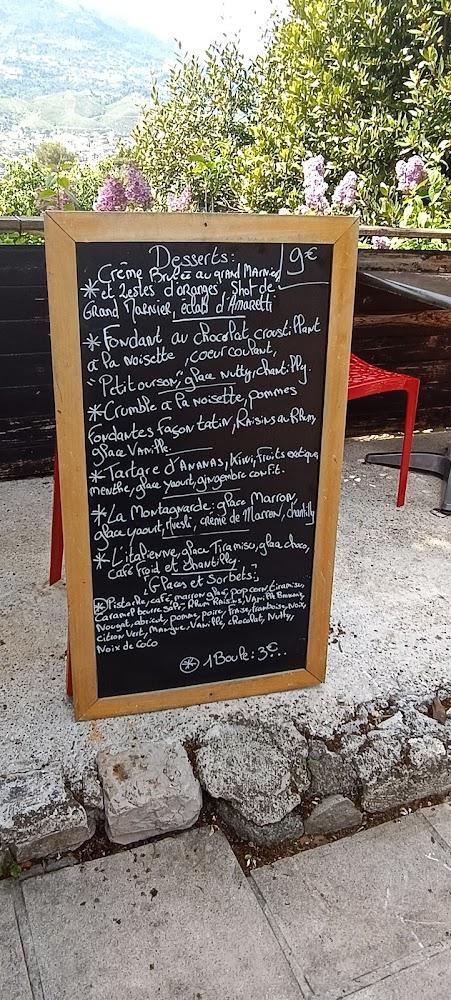 Desserts: 9€
Crème Brulée au grand Marnier
* et Zestes d'oranges, Shot de
Grand Marnier, éclats d'Amaretti
* Fondant au chocolat croustillant
à la noisette, coeur coulant,
"Petit ourson", glace nutty, chantilly.
* Crumble à la noisette, pommes
fondantes façon tatin, Raisins au Rhum,
glace Vanille.
* Tartare d'Ananas, Kiwi, Fruits exotiques
menthe, glace yaourt, gingembre confit.
* La Montagnarde: glace Marron,
glace yaourt, Muesli, crème de Marron, chantilly
* L'italienne, glace Tiramisu, glace choco,
café froid et chantilly.
"Glaces et Sorbets"
* Pistache, café, marron glacé, popcorn, tiramisu,
Caramel beurre salé, Rhum Raisins, Vanille Banane,
Nougat, abricot, pomme, poire, fraise, framboise, Noix,
citron Vert, Mangue, Vanille, chocolat, Nutty,
Noix de Coco
* 1 Boule: 3€...